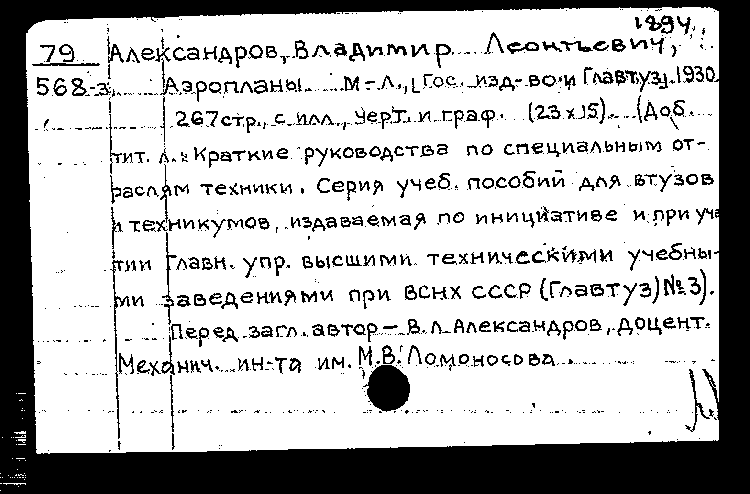 1894,
79 Александров, Владимир Леонтьевич,
568-з Аэропланы. М-Л., [Гос. изд-во и Главтуз], 1930.
267стр., с илл., черт. и граф. (23х15). (Доб.
тит. л.: Краткие руководства по специальным от-
раслям техники. Серия учеб. пособий для втузов
и техникумов, издаваемая по инициативе и при уча
тии Главн. упр. высшими техническими учебны-
ми заведениями при ВСНХ СССР (Главтуз) №3).
Перед загл. автор — В.Л. Александров, доцент.
Механич. ин-та им. М.В. Ломоносова.